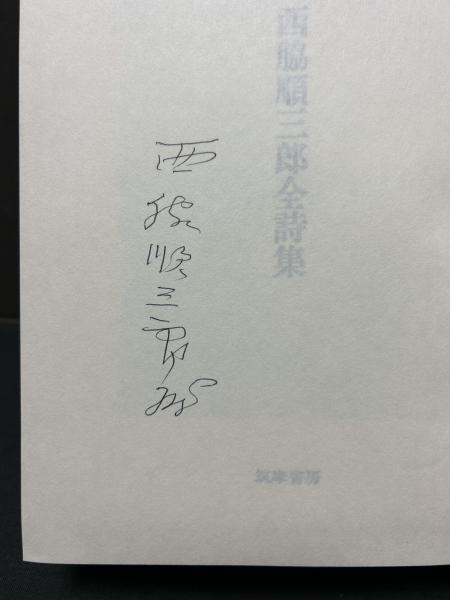 西脇順三郎全詩集
西脇順三郎
筑摩書房